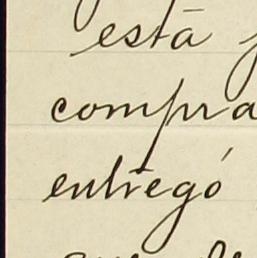 está
compra
entregó